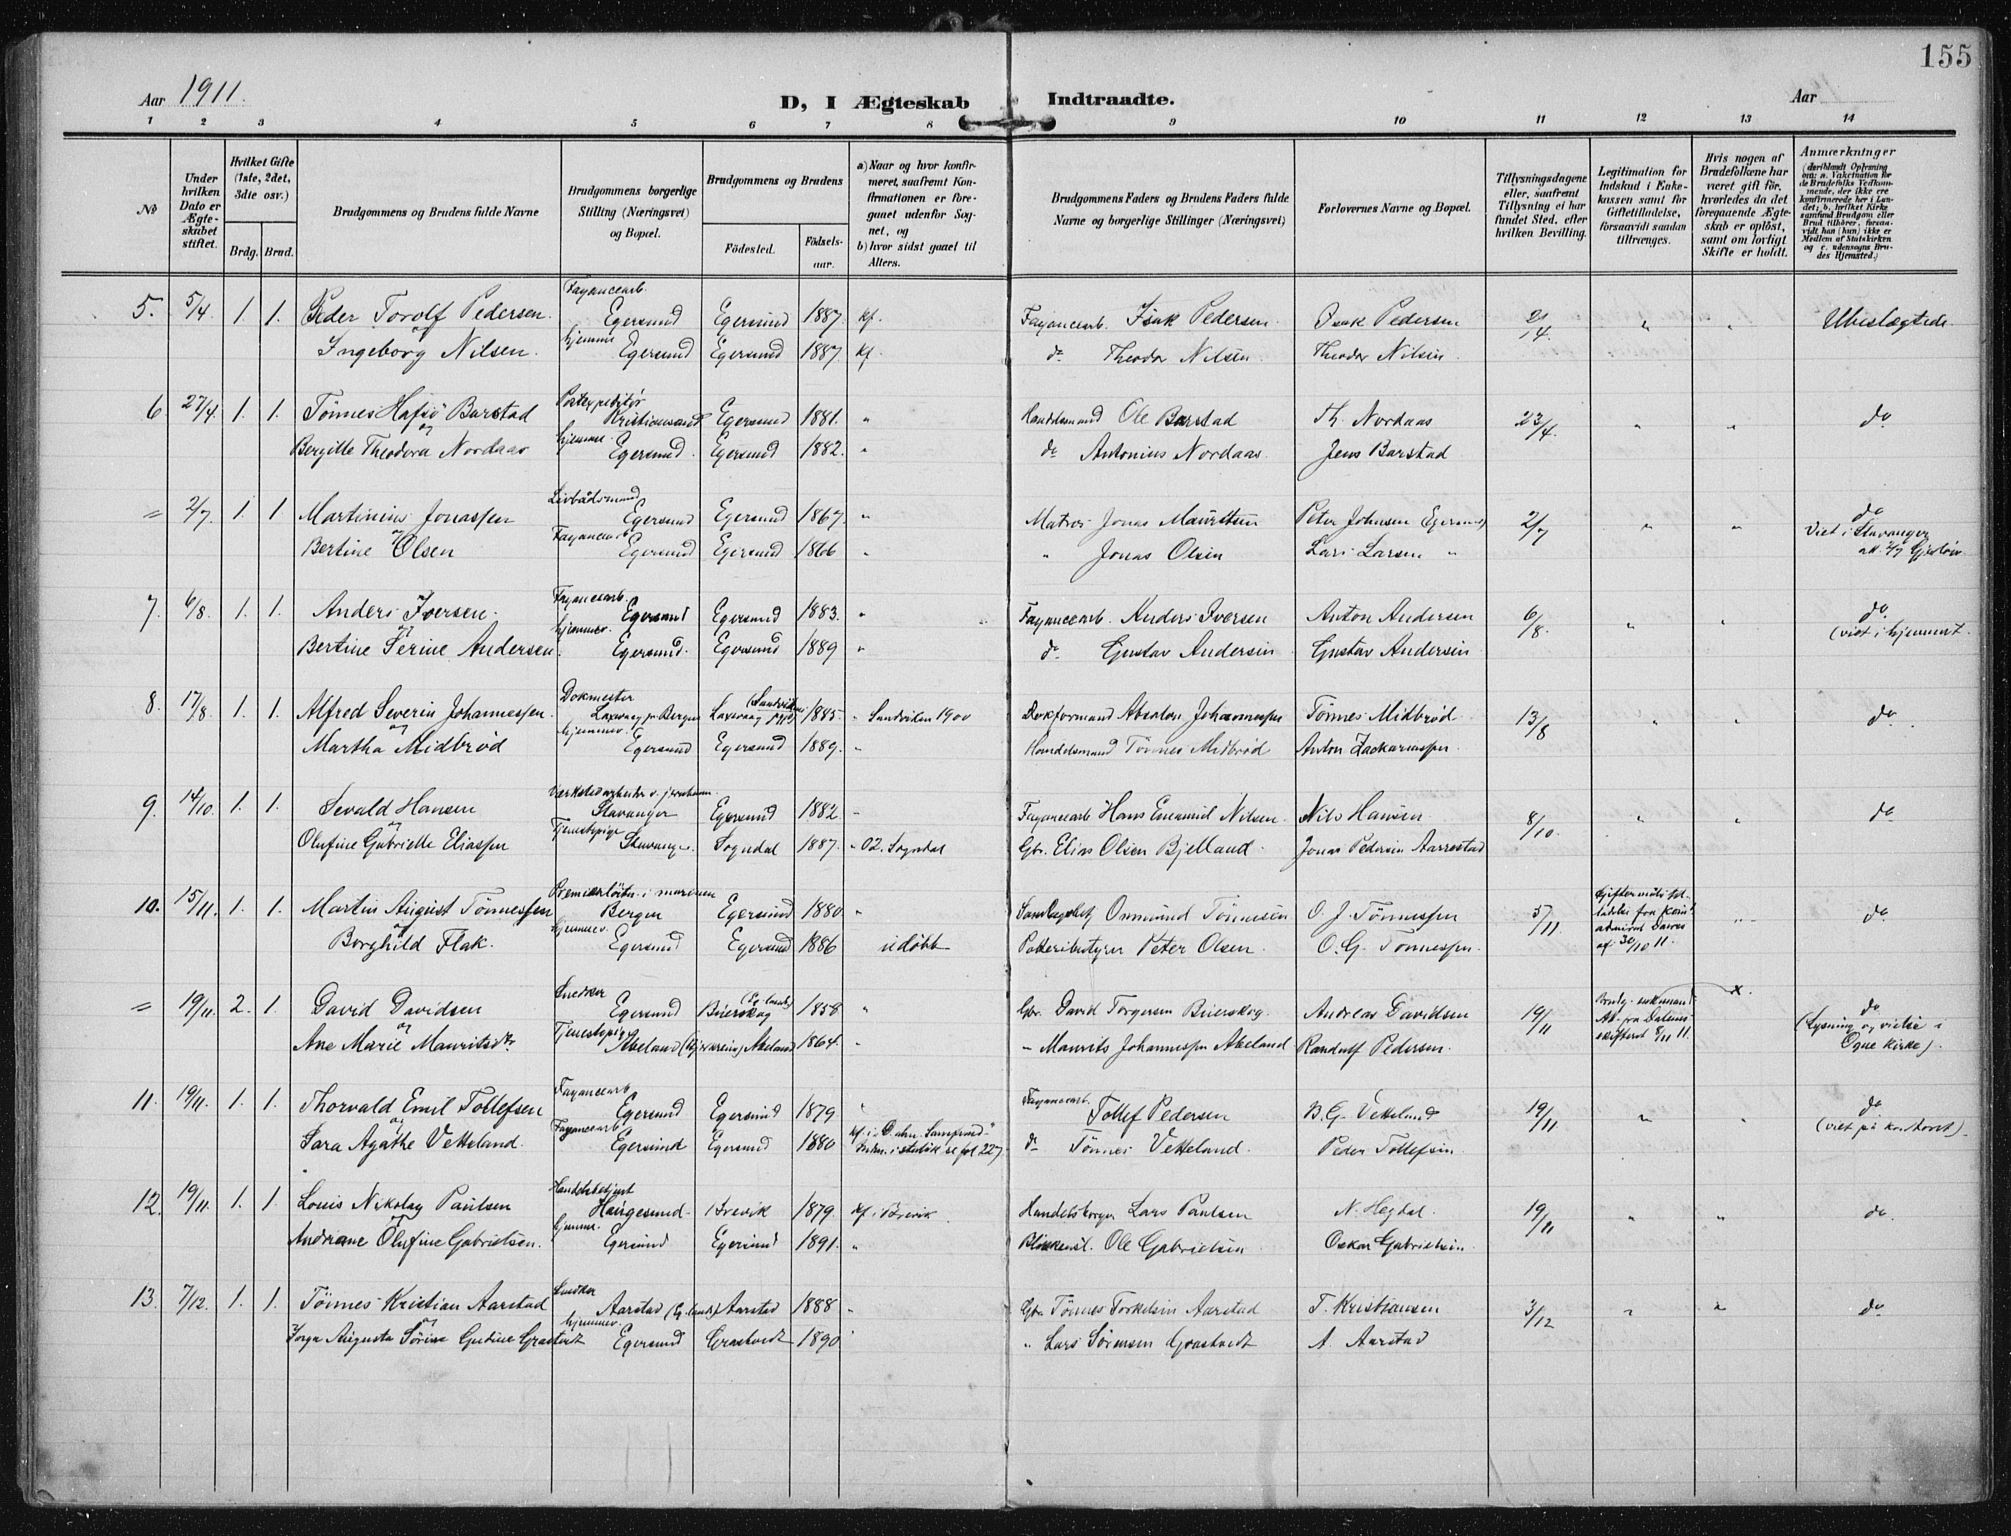 155
Aar 1911.
D, I Ægteskab Indtraadte.
Aar
1 2 3 4 5 6 7 8 9 10 11 12 13 14
№
Under hvilken Dato er Ægteskabet stiftet.
Hvilket Gifte (1ste, 2det, 3die osv.)
Brdg. Brud.
Brudgommens og Brudens fulde Navne
Brudgommens borgerlige Stilling (Næringsvei) og Bopæl.
Brudgommens og Brudens
Födested. Födselsaar.
a) Naar og hvor konfirmeret, saafremt Konfirmationen er foregaaet udenfor Sognet, og b) hvor sidst gaaet til Alters.
Brudgommens Faders og Brudens Faders fulde Navne og borgerlige Stillinger (Næringsvei)
Forlovernes Navne og Bopæl.
Tillysningsdagene eller, saafremt Tillysning ei har fundet Sted, efter hvilken Bevilling.
Legitimation for Indskud i Enkekassen samt for Giftetilladelse, forsaavidt saadan tiltrænges.
Hvis nogen af Brudefolkene har været gift för, hvorledes da det foregaaende Ægteskab er oplöst, samt om lovligt Skifte er holdt.
Anmærkninger (deriblandt Oplysning om: a. Vakcination for de Brudefolks Vedkommende, der ikke ere konfirmerede her i Landet; b. hvilket Kirkesamfund Brudgom eller Brud tilhörer, forsaavidt han (hun) ikke er Medlem af Statskirken og c. udensogns Brudes Hjemsted.)
5. 5/4 1. 1. Peder Torolf Pedersen Fayancearb. Egersund Egersund 1887. kf. Fayancearb. Isak Pedersen Isak Pedersen 2/4 " " Ubeslægtede
og Ingeborg Nilsen. hjemme Egersund Egersund 1887. kf do Theodor Nilsen Theodor Nilsen
6 27/4 1. 1. Tönnes Hafsö Barstad Postexpeditör Kristiansand Egersund 1881. " Handelsmand Ole Barstad Th. Nordaas 23/4. " " do
og Bergitte Theodora Nordaas hjemme. Egersund. Egersund 1882. " do Antonius Nordaas Jens Barstad
= 2/7 1. 1. Martinius Jonassen Livbådsmand Egersund Egersund 1867. " Matros Jonas Mauritsen Peter Johnsen Egersund 2/7 " " do
og Bertine Olsen Fayancearb Egersund Egersund 1866 " " Jonas Olsen Lars Larsen " Viet i Stavanger
7. 6/8. 1. 1. Anders Iversen. Fayancearb. Egersund Egersund 1883. " Fayancearb. Anders Iversen Anton Andersen 6/8. " " do
og Bertine Serine Andersen hjemmev. Egersund. Egersund 1889 " do Gustav Andersen Gustav Andersen (viet i hjemmet.
8. 17/8. 1. 1. Alfred Severin Johannessen. Dokmester Laxevaag pr Bergen Laxevaag 1885. " Sandviken 1900 Dokformand Absalon Johannessen Tönnes Midbröd 13/8 " " do
og Martha Midbröd hjemmev. Egersund Egersund 1889. " Handelsmand Tönnes Midbröd Anton Zackariassen.
9. 14/10. 1. 1. Sevald Hansen Værkstedarbeider v. jernbanen Stavanger Egersund 1882. " Fayancearb Hans Emanuel Nilsen Nils Hansen 8/10. " " do
og Olufine Gabrielle Eliassen Tjenestepige Stavanger. Sogndal 1887. " 02. Sogndal Gbr. Elias Olsen Bjelland. Jonas Pedersen Aarrestad
10. 15/11. 1. 1. Martin August Tönnessen Premierlöitn. i marinen Bergen Egersund 1880. " Osmund Tönnesen O. J. Tönnessen 5/11 af 30/10 11. " do
og Borghild Flak. hjemmev. Egersund Egersund 1886 udöbt Potteribestyrer Peter Olsen O. G. Tönnessen.
= 19/11 2. 1. David Davidsen Snedker Egersund Bjerskog 1858 " Gbr. David Torgersen Bjerskog. Andreas Davidsen 19/11 Brudg. enkemand x. do
og Ane Marie Mauritsdtr Tjenestepige Akeland (Bjerkreim) Akeland 1864. " " Maurits Johannessen Akeland Randulf Pedersen. (Lysning og vielse i Ogne kirke).
11. 19/11. 1. 1. Thorvald Emil Tollefsen Fayancearb Egersund Egersund 1879 " Fayancearb. Tollef Pedersen B. G. Vetteland 19/11 " " do
og Sara Agathe Vetteland. Fayancearb Egersund Egersund 1880 do Tönnes Vetteland. Peder Tollefsen (viet på kontoret).
12. 19/11. 1. 1. Louis Nikolay Paulsen Handelsbetjent Haugesund. Brevik 1879. kf. i Brevik Handelsborger Lars Paulsen N. Hegdal. 19/11 " " do.
og Andriane Olufine Gabrielsen. hjemme. Egersund Egersund 1891. " Blikkensl. Ole Gabrielsen Oskar Gabrielsen.
13. 7/12. 1. 1. Tönnes Kristian Aarstad Snedker Aarstad (Eg. land.) Aarstad 1888 " Gbr. Tönnes Torkelsen Aarstad T. Kristiansen 3/12 " " do
og Augusta Sörine Gurine Grastvedt hjemmev. Egersund Grastvedt 1890 " " Lars Sörensen Grastvedt A. Aarstad